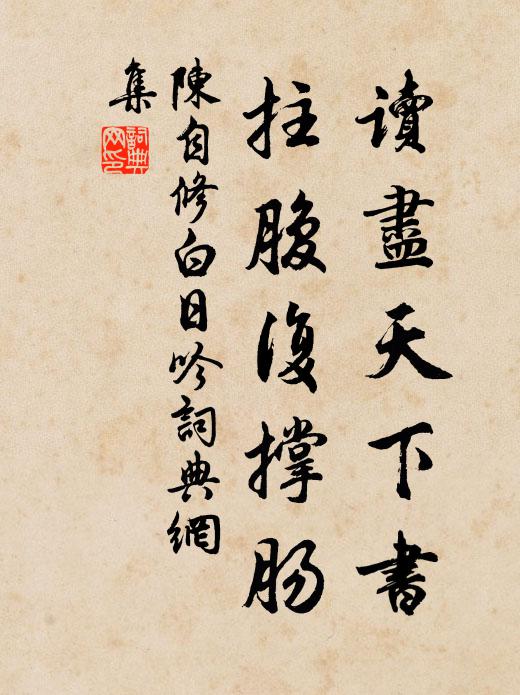 讀盡天下書
拄腹復撐肠
陳自修白日吟詞典網
集
詞典
网印